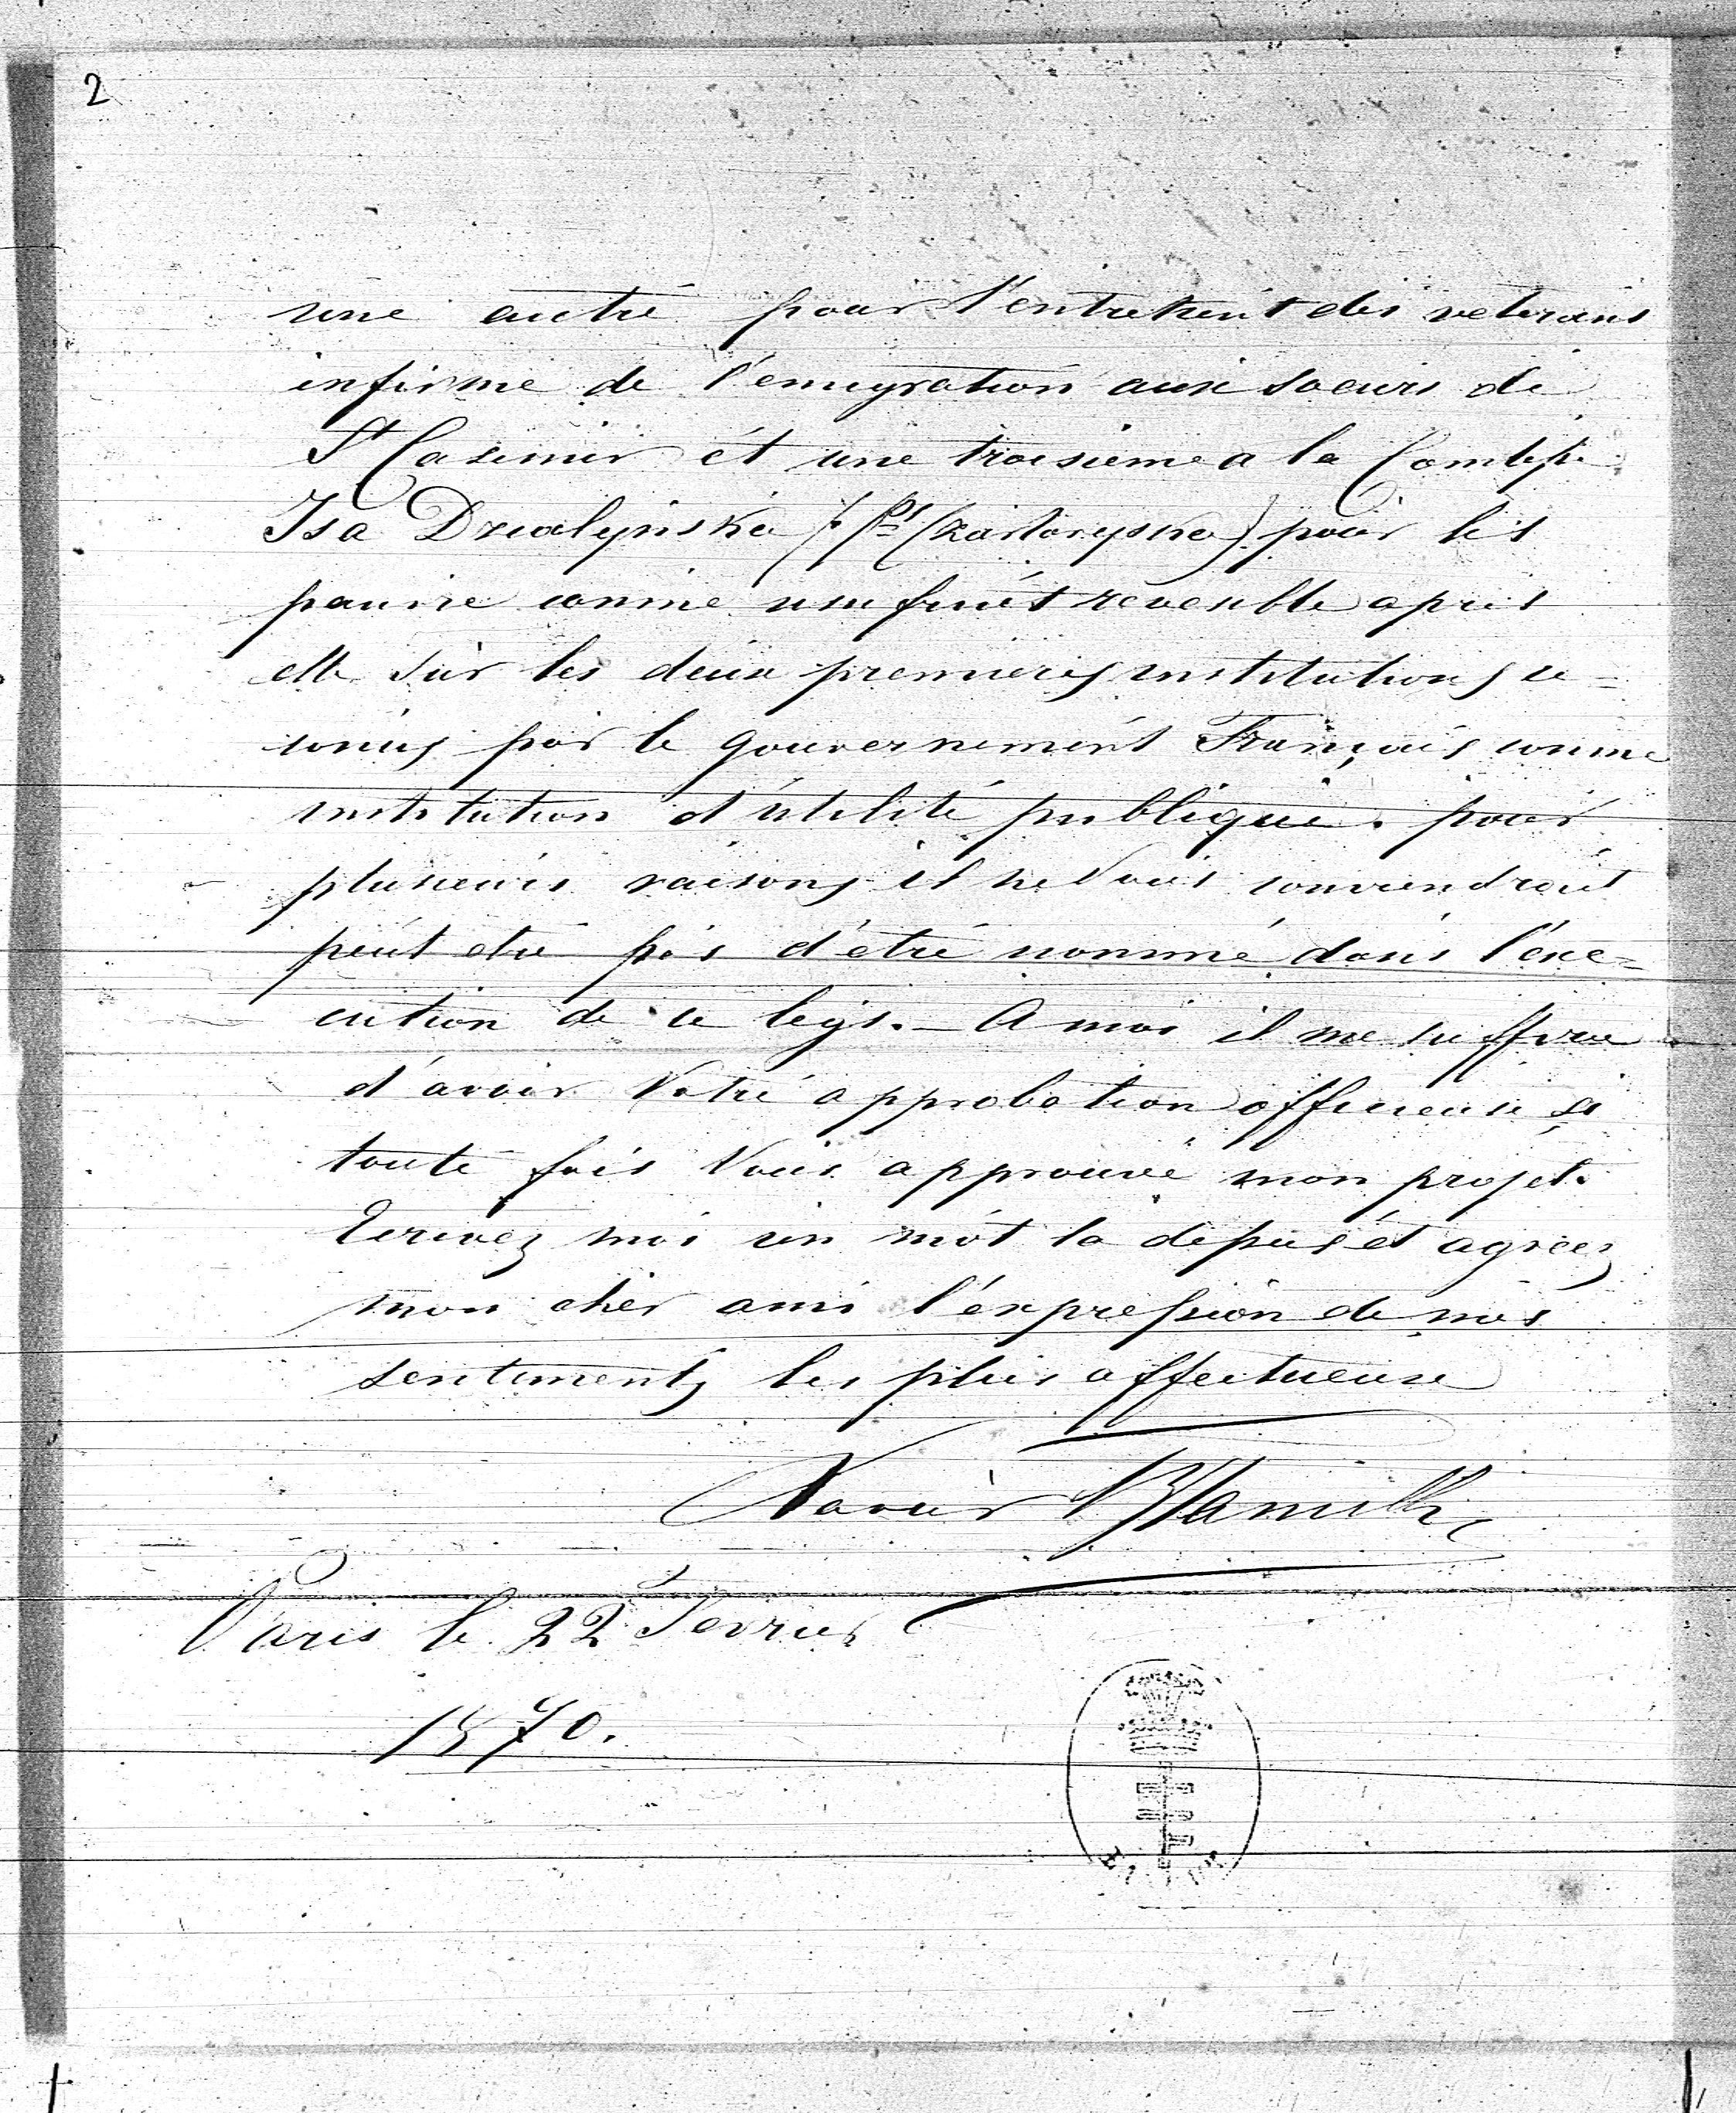 2
une autre pour l'entretient des veterans
infirme de l'emigration aux soeurs de
St Casimir et une troisieme a la Comtesse
Isa Dzialynska (Pss Czartoryska) pour les
pauvre comme usufruit reversible apres
elle sur les deux premieres institutions re=
conus par le gouvernement Français comme
institution d'utilité publique. pour
plusieurs raisons il ne Vous conviendrait
peut etre pas d'etre nommé dans l'exe=
cution de ce legs.— A moi il me suffira
d'avoir Votre approbation officieuse si
toute fois Vous approuvé mon projet.
Ecrivez moi un mot la depus et agreez
mon cher ami l'expression de mes
sentiments les plus affectueux
Xavier
Paris le 22 Fevrier
1870.